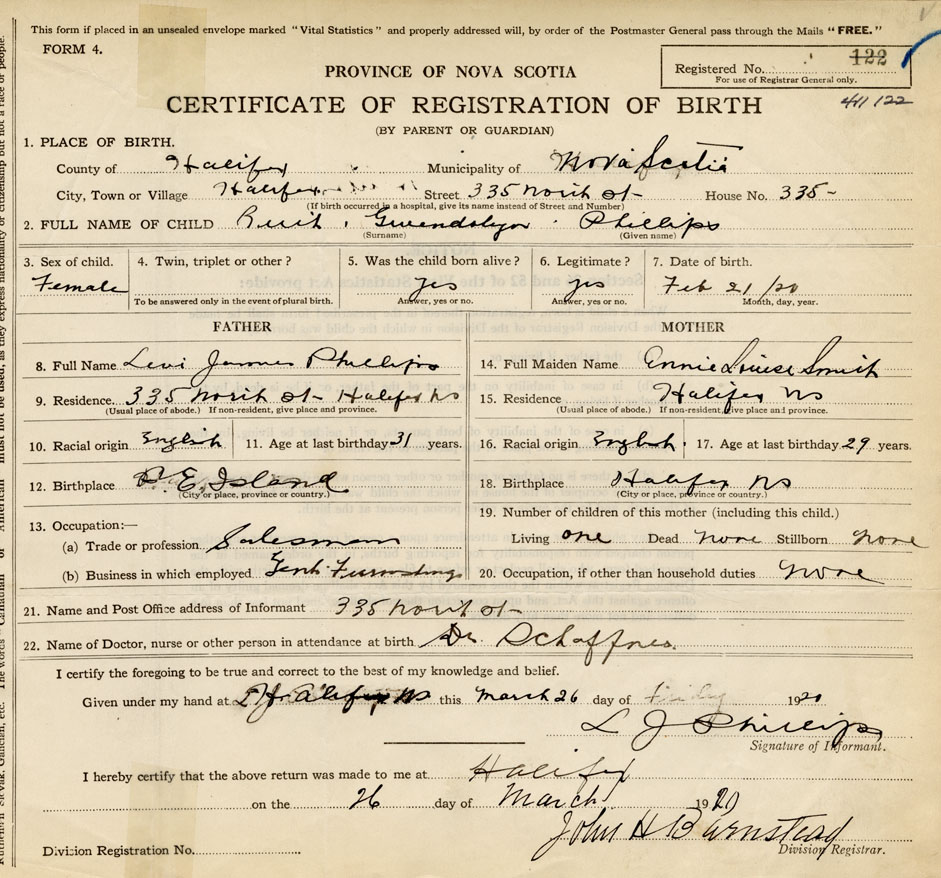 This form if placed in an unsealed envelope marked "Vital Statistics" and properly addressed will, by order of the Postmaster General pass through the Mails "FREE."
FORM 4.
Registered No. 122
For use of Registrar General only.
PROVINCE OF NOVA SCOTIA
CERTIFICATE OF REGISTRATION OF BIRTH
122
(BY PARENT OR GUARDIAN)
1. PLACE OF BIRTH.
County of Halifax Municipality of Nova Scotia
City, Town or Village Halifax Street 335 North St- House No. 335-
(If birth occurred in a hospital, give its name instead of Street and Number)
2. FULL NAME OF CHILD Ruth Gwendolyn Phillips
(Surname) (Given name)
3. Sex of child. 4. Twin, triplet or other? 5. Was the child born alive? 6. Legitimate? 7. Date of birth.
Female yes yes Feb 21/20
To be answered only in the event of plural birth. Answer, yes or no. Answer, yes or no. Month, day, year.
FATHER MOTHER
8. Full Name Levi James Phillips 14. Full Maiden Name Annie Louise Smith
9. Residence 335 North St- Halifax NS 15. Residence Halifax NS
(Usual place of abode.) If non-resident, give place and province. (Usual place of abode.) If non-resident, give place and province.
10. Racial origin English 11. Age at last birthday 31 years. 16. Racial origin English. 17. Age at last birthday 29 years.
12. Birthplace P.E. Island 18. Birthplace Halifax NS
(City or place, province or country.) (City or place, province or country.)
19. Number of children of this mother (including this child.)
13. Occupation:—
Living one Dead None Stillborn None
(a) Trade or profession Salesman
(b) Business in which employed Gents Furnishings 20. Occupation, if other than household duties None
21. Name and Post Office address of Informant 335 North St-
22. Name of Doctor, nurse or other person in attendance at birth Dr. Schaffner
I certify the foregoing to be true and correct to the best of my knowledge and belief.
Given under my hand at Halifax NS this March 26 day of Friday 1920
L J Phillips
Signature of Informant.
I hereby certify that the above return was made to me at Halifax
on the 26 day of March 1920
John H Barnstead
Division Registration No. Division Registrar.